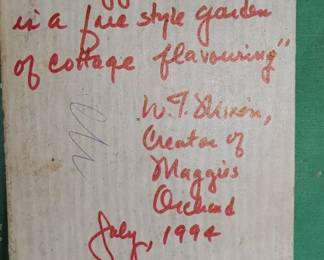 in a free style garden
of cottage flavouring"
W.T.
Creator of
Maggies
Orchard
July, 1994